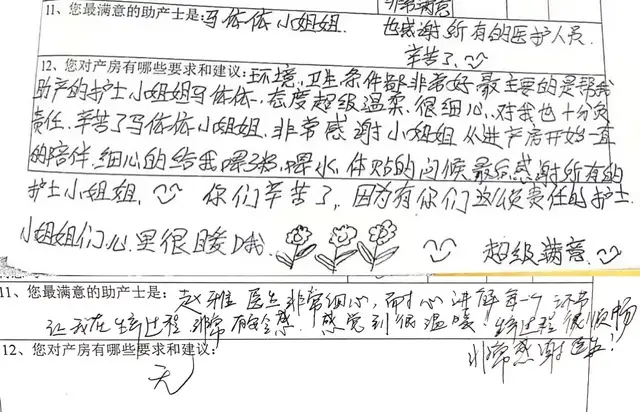 非常满意
11、您最满意的助产士是:马体体小姐姐 也感谢所有的医护人员.
辛苦了.
12、您对产房有哪些要求和建议:环境、卫生、条件都非常好.最主要的是帮我
助产的护士小姐姐马体体.态度超级温柔.很细心.对我也十分负
责任.辛苦了马体体小姐姐.非常感谢小姐姐从进产房开始一直
的陪伴.细心的给我喂粥.喂水.体贴的问候.最后感谢所有的
护士小姐姐. 你们辛苦了.因为有你们这么负责任的护士
小姐姐们心里很暖哦. 超级满意.
11、您最满意的助产士是: 赵雅 医生非常细心,耐心讲解每一个环节
让我在生产过程非常有安全感.感觉到很温暖!生产过程很顺畅
非常感谢医生!
12、您对产房有哪些要求和建议:
无